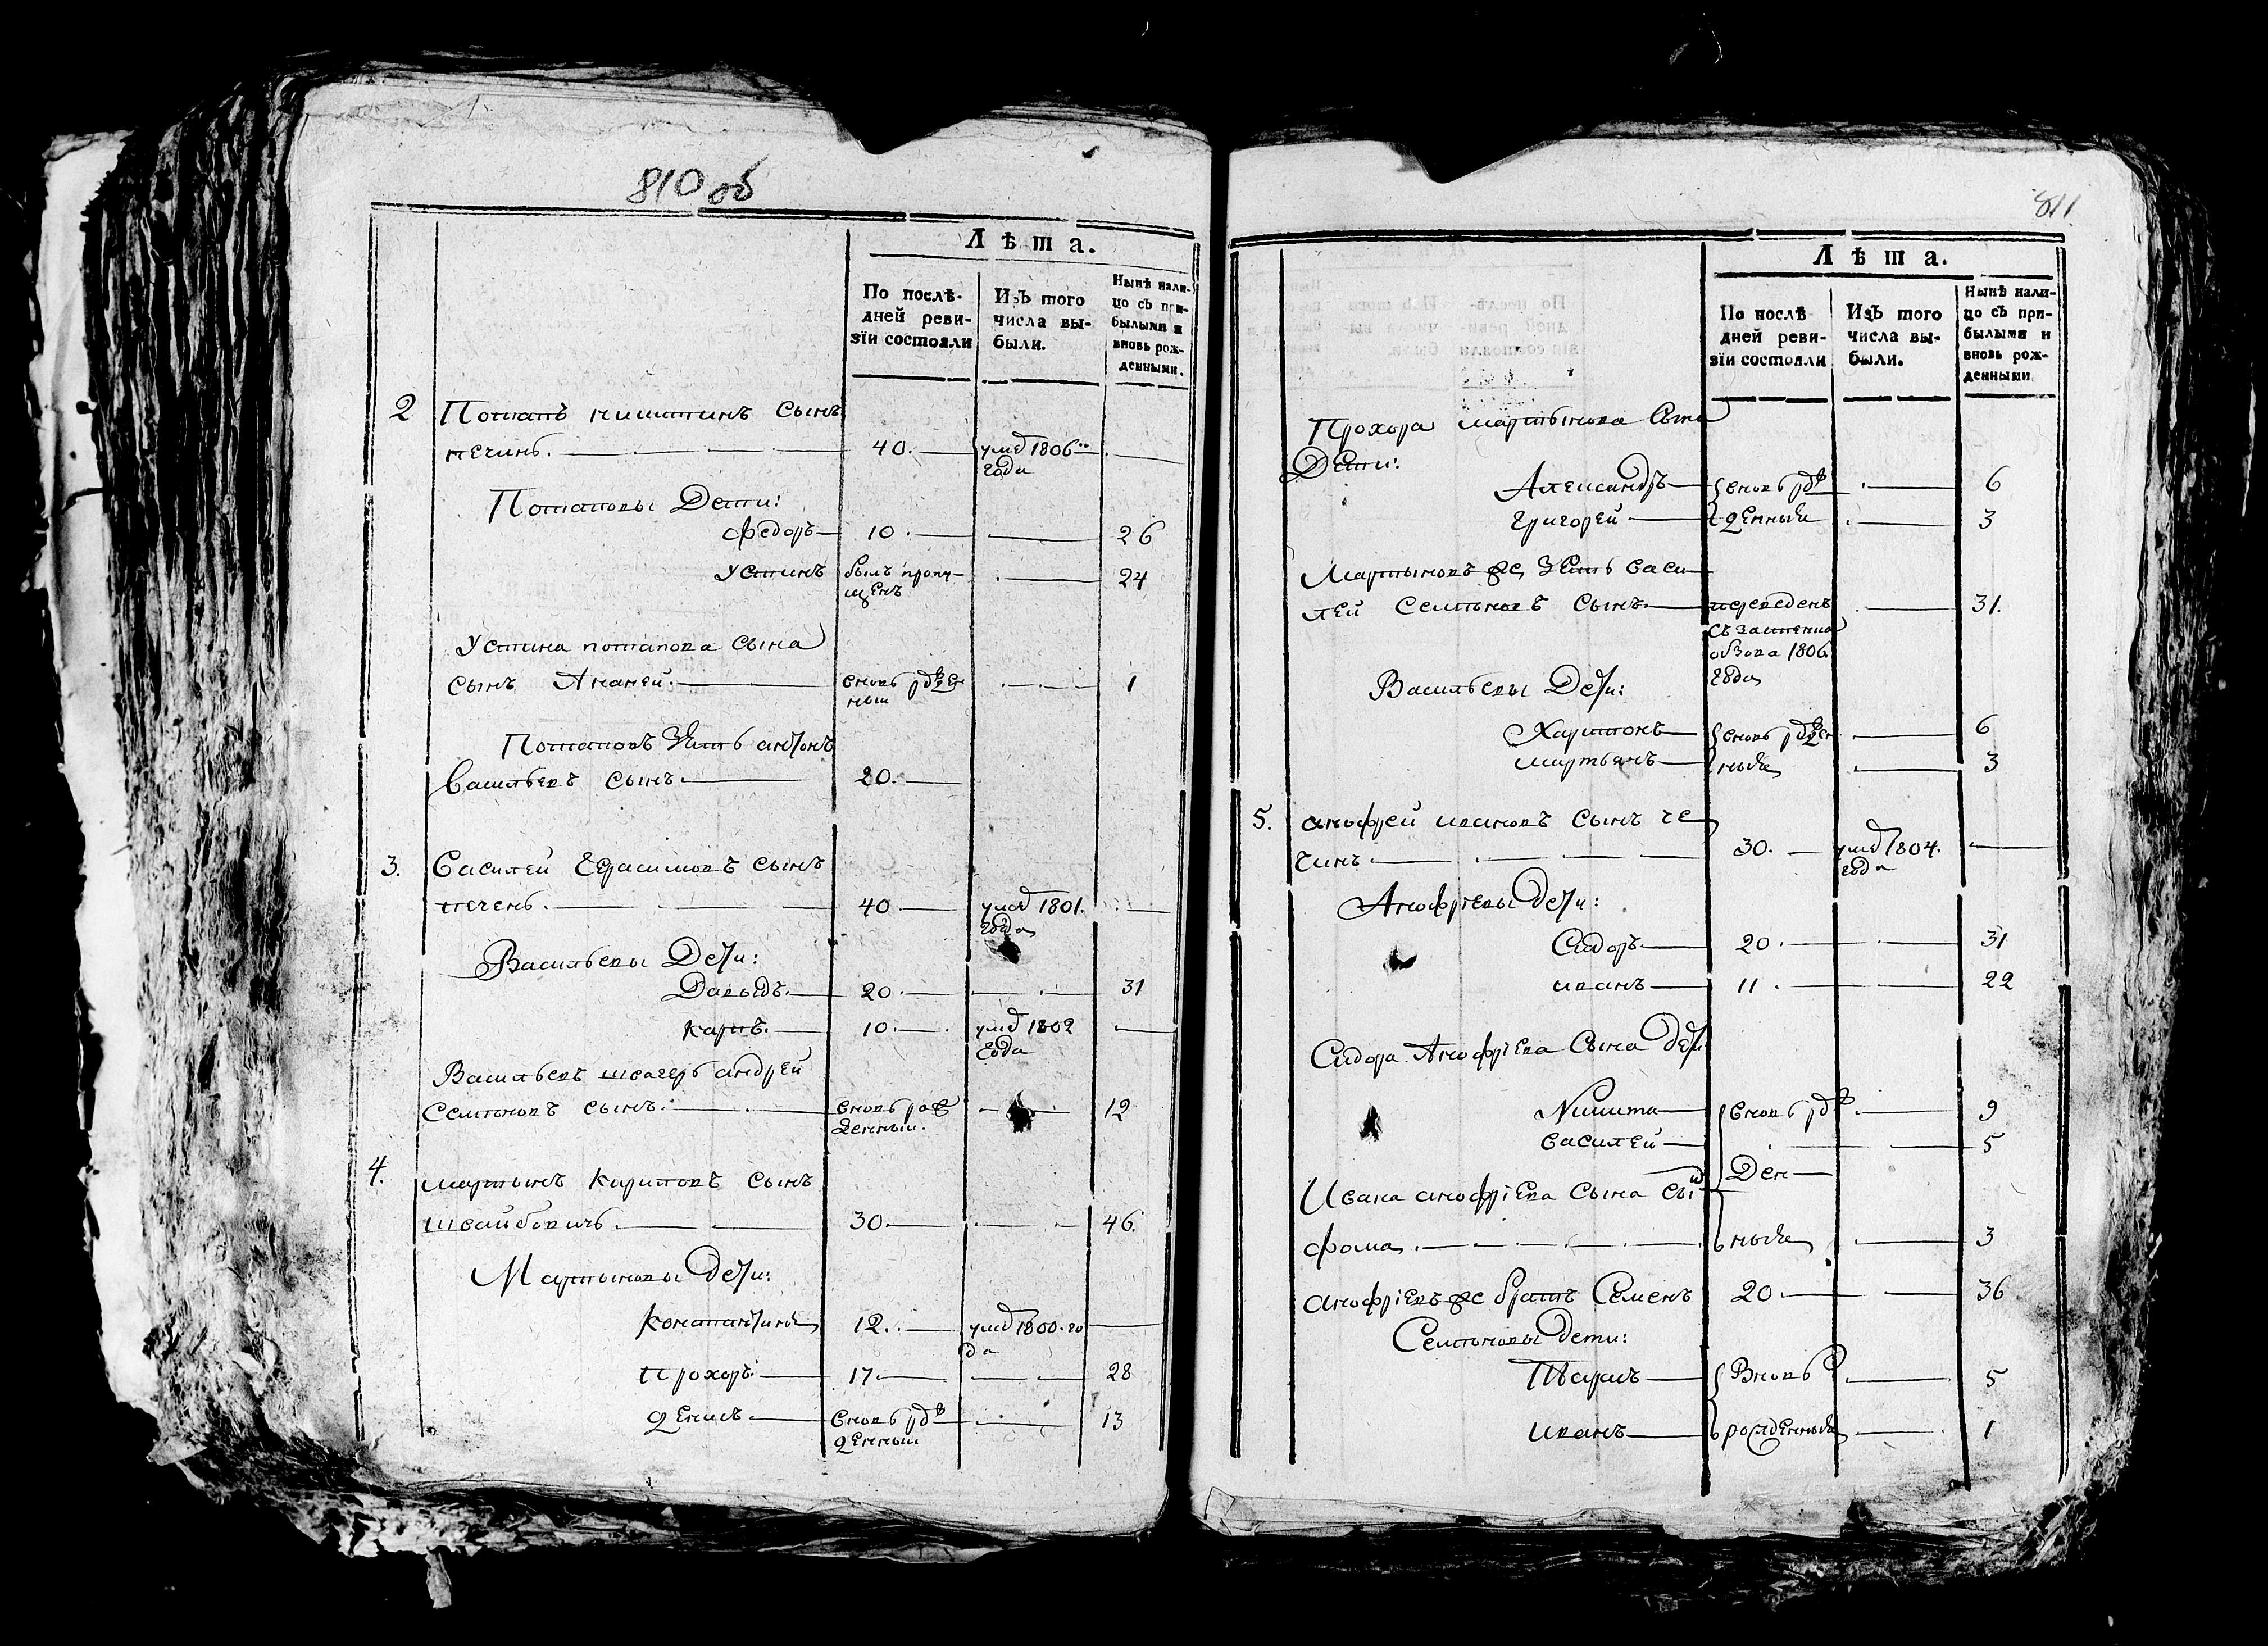 810 об
Лѣта.
По послѣ-
дней реви-
зїи состояли
Изъ того
числа вы-
были.
Нынѣ нали-
цо съ при-
былыми и
вновь рож-
денными.
2 Потапъ никитинъ сынъ
40. умер 1806го
года
Потаповы Дети:
федоръ 10. 26
устинъ былъ пропу- 24
щенъ
Устина потапова сына
сынъ Ананей. вновь рожден 1
ныи
Потаповъ Зять антонъ
Васильевъ сынъ 20.
3. Василей Герасимовъ сынъ
40 умер 1801.
года
Васильевы Дети:
Давыдъ 20. 31
карпъ. 10. умер 1802
года
Васильевъ швагеръ андрей
Семеновъ сынъ: вновь рож 12
денныи.
4. мартынъ карповъ сынъ
30 46.
Мартыновы дети:
константинъ 12. умер 1800. го
да
прохоръ 17 28
денисъ вновь рож 13
денныи
811
Лѣта.
По послѣ
дней реви-
зїи состояли
Изъ того
числа вы-
были.
Нынѣ нали-
цо съ при-
былыми и
вновь рож-
денными
Прохора мартынова сына
Дети:
Александръ вновь рож 6
григорей денныя 3
Мартыновъ же Зять васи
лей семеновъ сынъ. переведенъ 31.
1806.
года
Васильевы Дети:
Харитонъ вновь рожден 6
мартынъ ныя 3
5. анофрей ивановъ сынъ че
чинъ 30. умер 1804.
года
Анофріевы дети:
Сидоръ 20. 31
иванъ 11. 22
Сидора Анофріева Сына дети
Никита вновь рож 9
василей 5
Ден
Ивана анофріева сына сынъ
фома ныя 3
анофріевъ же братъ Семенъ 20 36
Семеновы дети:
Тарасъ Вновь 5
иванъ рожденныя 1